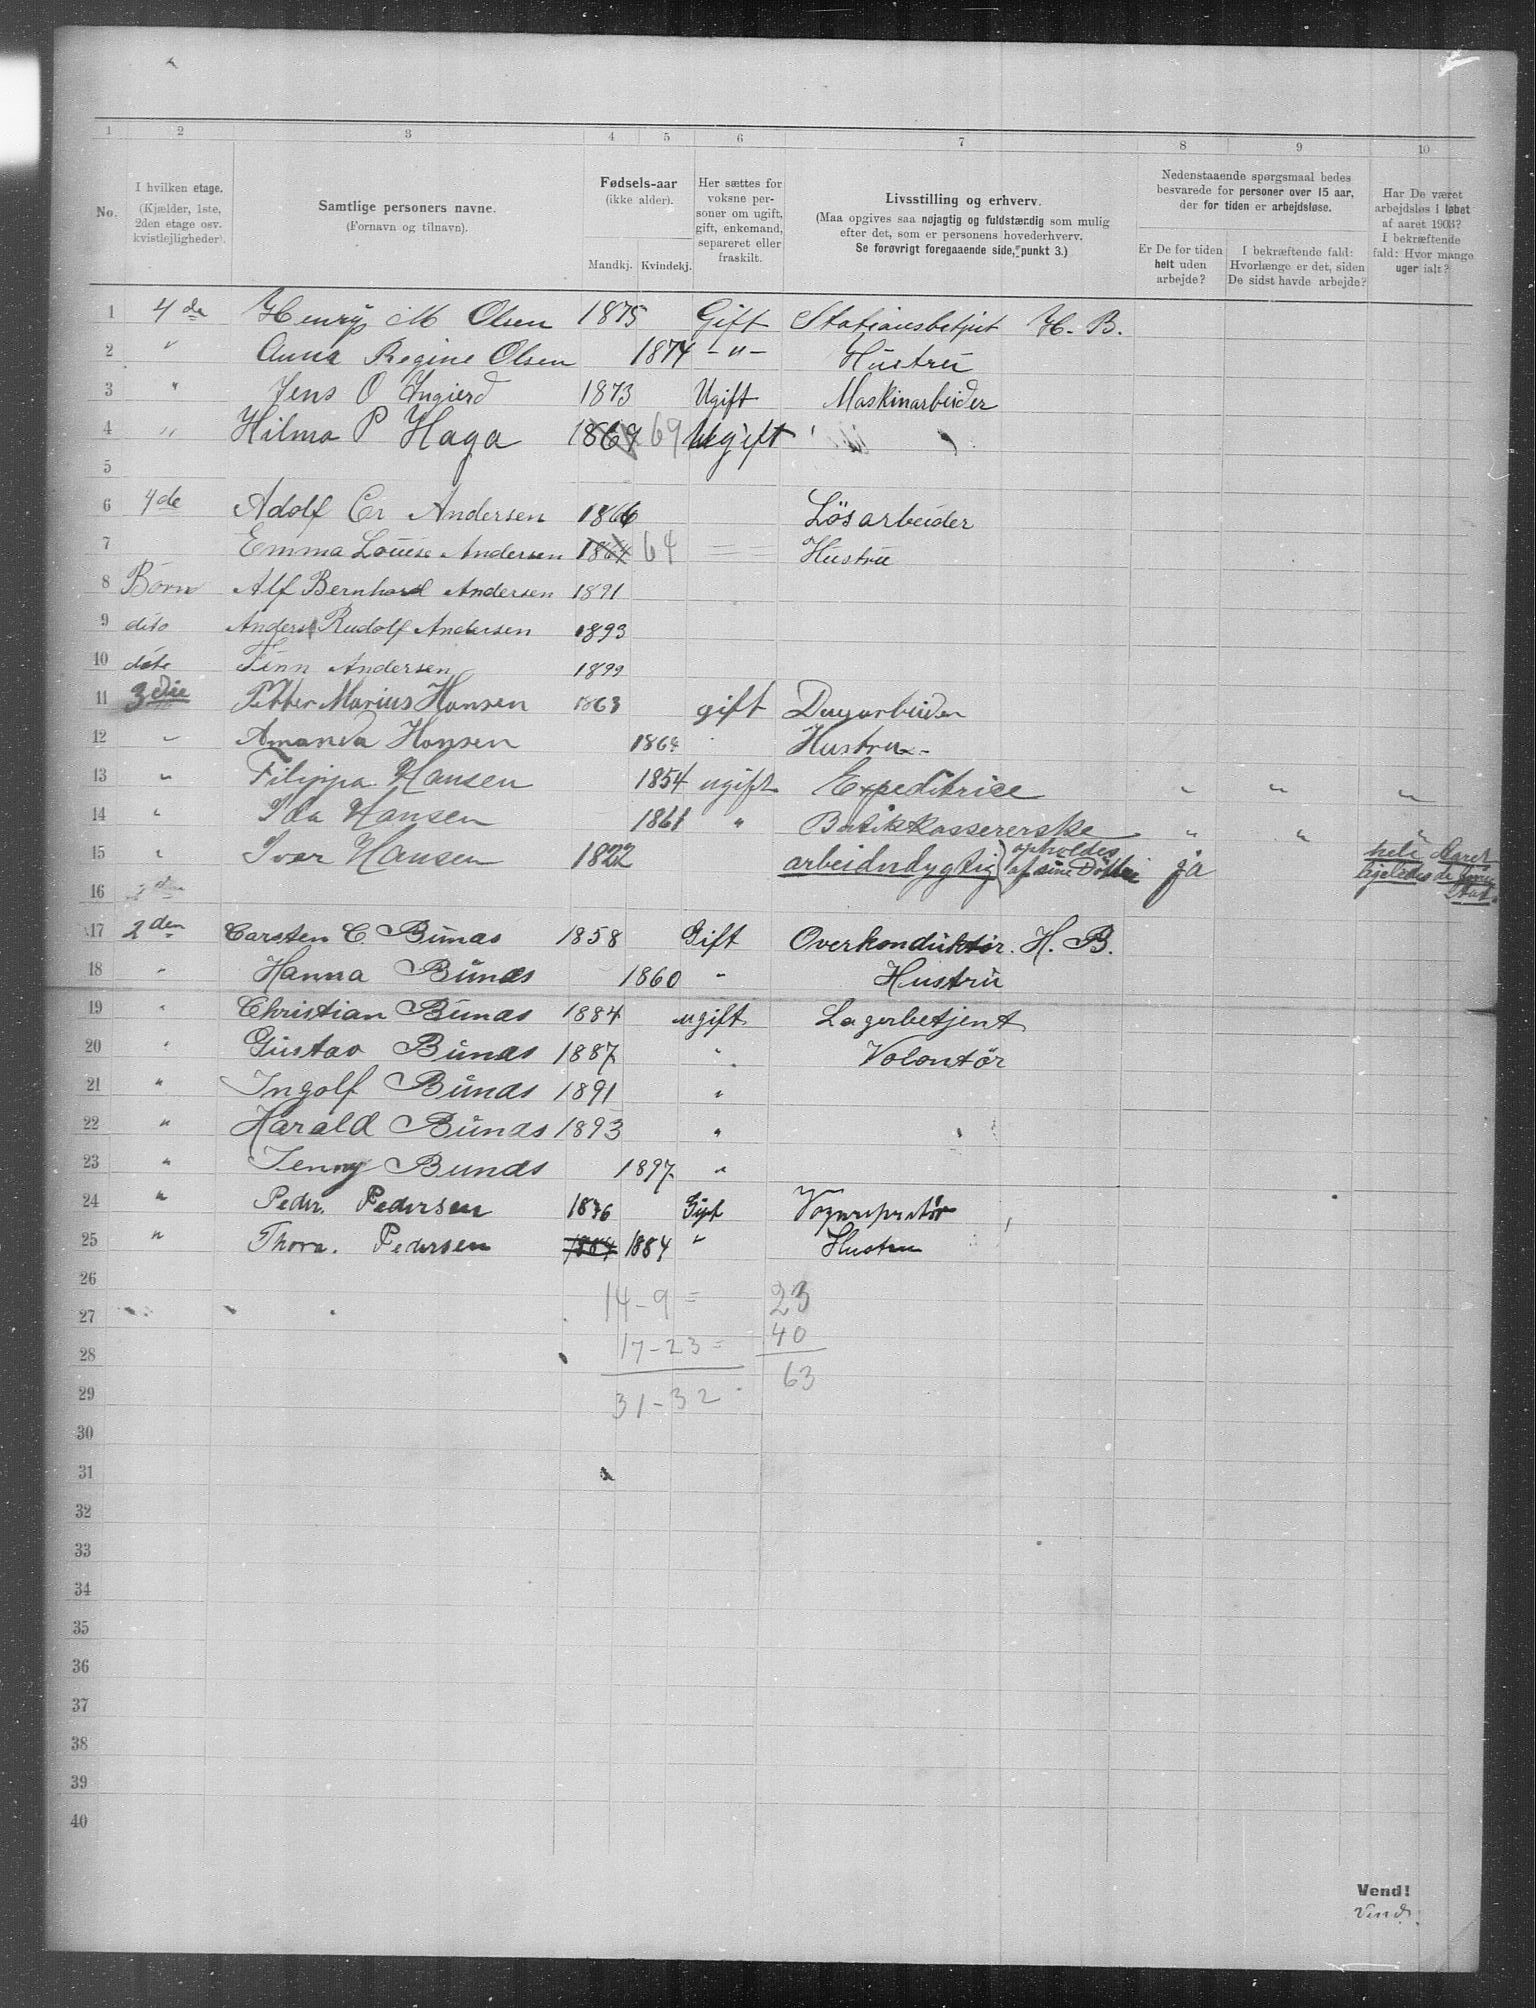 1 2 3 4 5 6 7 8 9 10
No.
I hvilken etage.
(Kjælder, 1ste,
2den etage osv.
kvistlejligheder).
Samtlige personers navne.
(Fornavn og tilnavn).
Fødsels-aar
(ikke alder).
Mandkj. Kvindekj.
Her sættes for
voksne per-
soner om ugift,
gift, enkemand,
separeret eller
fraskilt.
Livsstilling og erhverv.
(Maa opgives saa nøjagtig og fuldstændig som mulig
efter det, som er personens hovederhverv.
Se forøvrigt foregaaende side, punkt 3.)
Nedenstaaende spørgsmaal bedes
besvarede for personer over 15 aar,
der for tiden er arbejdsløse.
Er De for tiden
helt uden
arbejde?
I bekræftende fald:
Hvorlænge er det, siden
De sidst havde arbejde?
Har De været
arbejdsløs i løbet
af aaret 1903?
I bekræftende
fald: Hvor mange
uger ialt?
1 4de Henry M Olsen 1875 Gift Stationsbetjnt H. B.
2 " Anna Regine Olsen 1874 -"- Hustru
3 " Jens O Ingierd 1873 Ugift Maskinarbeider
4 " Hilma P Haga 1869 69 Ugift
5
6 4de Adolf Cr Andersen 1866 Lösarbeider
7 Emma Louise Andersen 1864 64 Hustru
8 Børn Alf Bernhard Andersen 1891
9 dito Anders Rudolf Andersen 1893
10 dito Finn Andersen 1899
11 3die Petter Marius Hansen 1863 gift Dagarbeider
12 " Amanda Hansen 1864 Hustru
13 " Filippa Hansen 1854 ugift Expeditrice " " "
14 " Ida Hansen 1861 " Butikkassererske " " "
15 " Ivar Hansen 1822 arbeidudygtig (opholdes af sine Døttre ja hele Aaret
ligeledes de
16
17 2den Carsten C Bünas 1858 Gift Overkonduktør. H. B.
18 " Hanna Bünas 1860 " Hustru
19 " Christian Bünas 1884 ugift Lagerbetjent
20 " Gustav Bünas 1887 " Volontør
21 " Ingolf Bünas 1891 "
22 " Harald Bünas 1893 "
23 " Jenny Bunas 1897 "
24 " Peder. Pedersen 1876 Gift Vognreperatör
25 " Thora. Pedersen 1884 1884 " Hustru
26
14-9 = 23
27
17-23 = 40
28
63
29
31-32
30
31
32
33
34
35
36
37
38
39
40
Vend!
Vend.